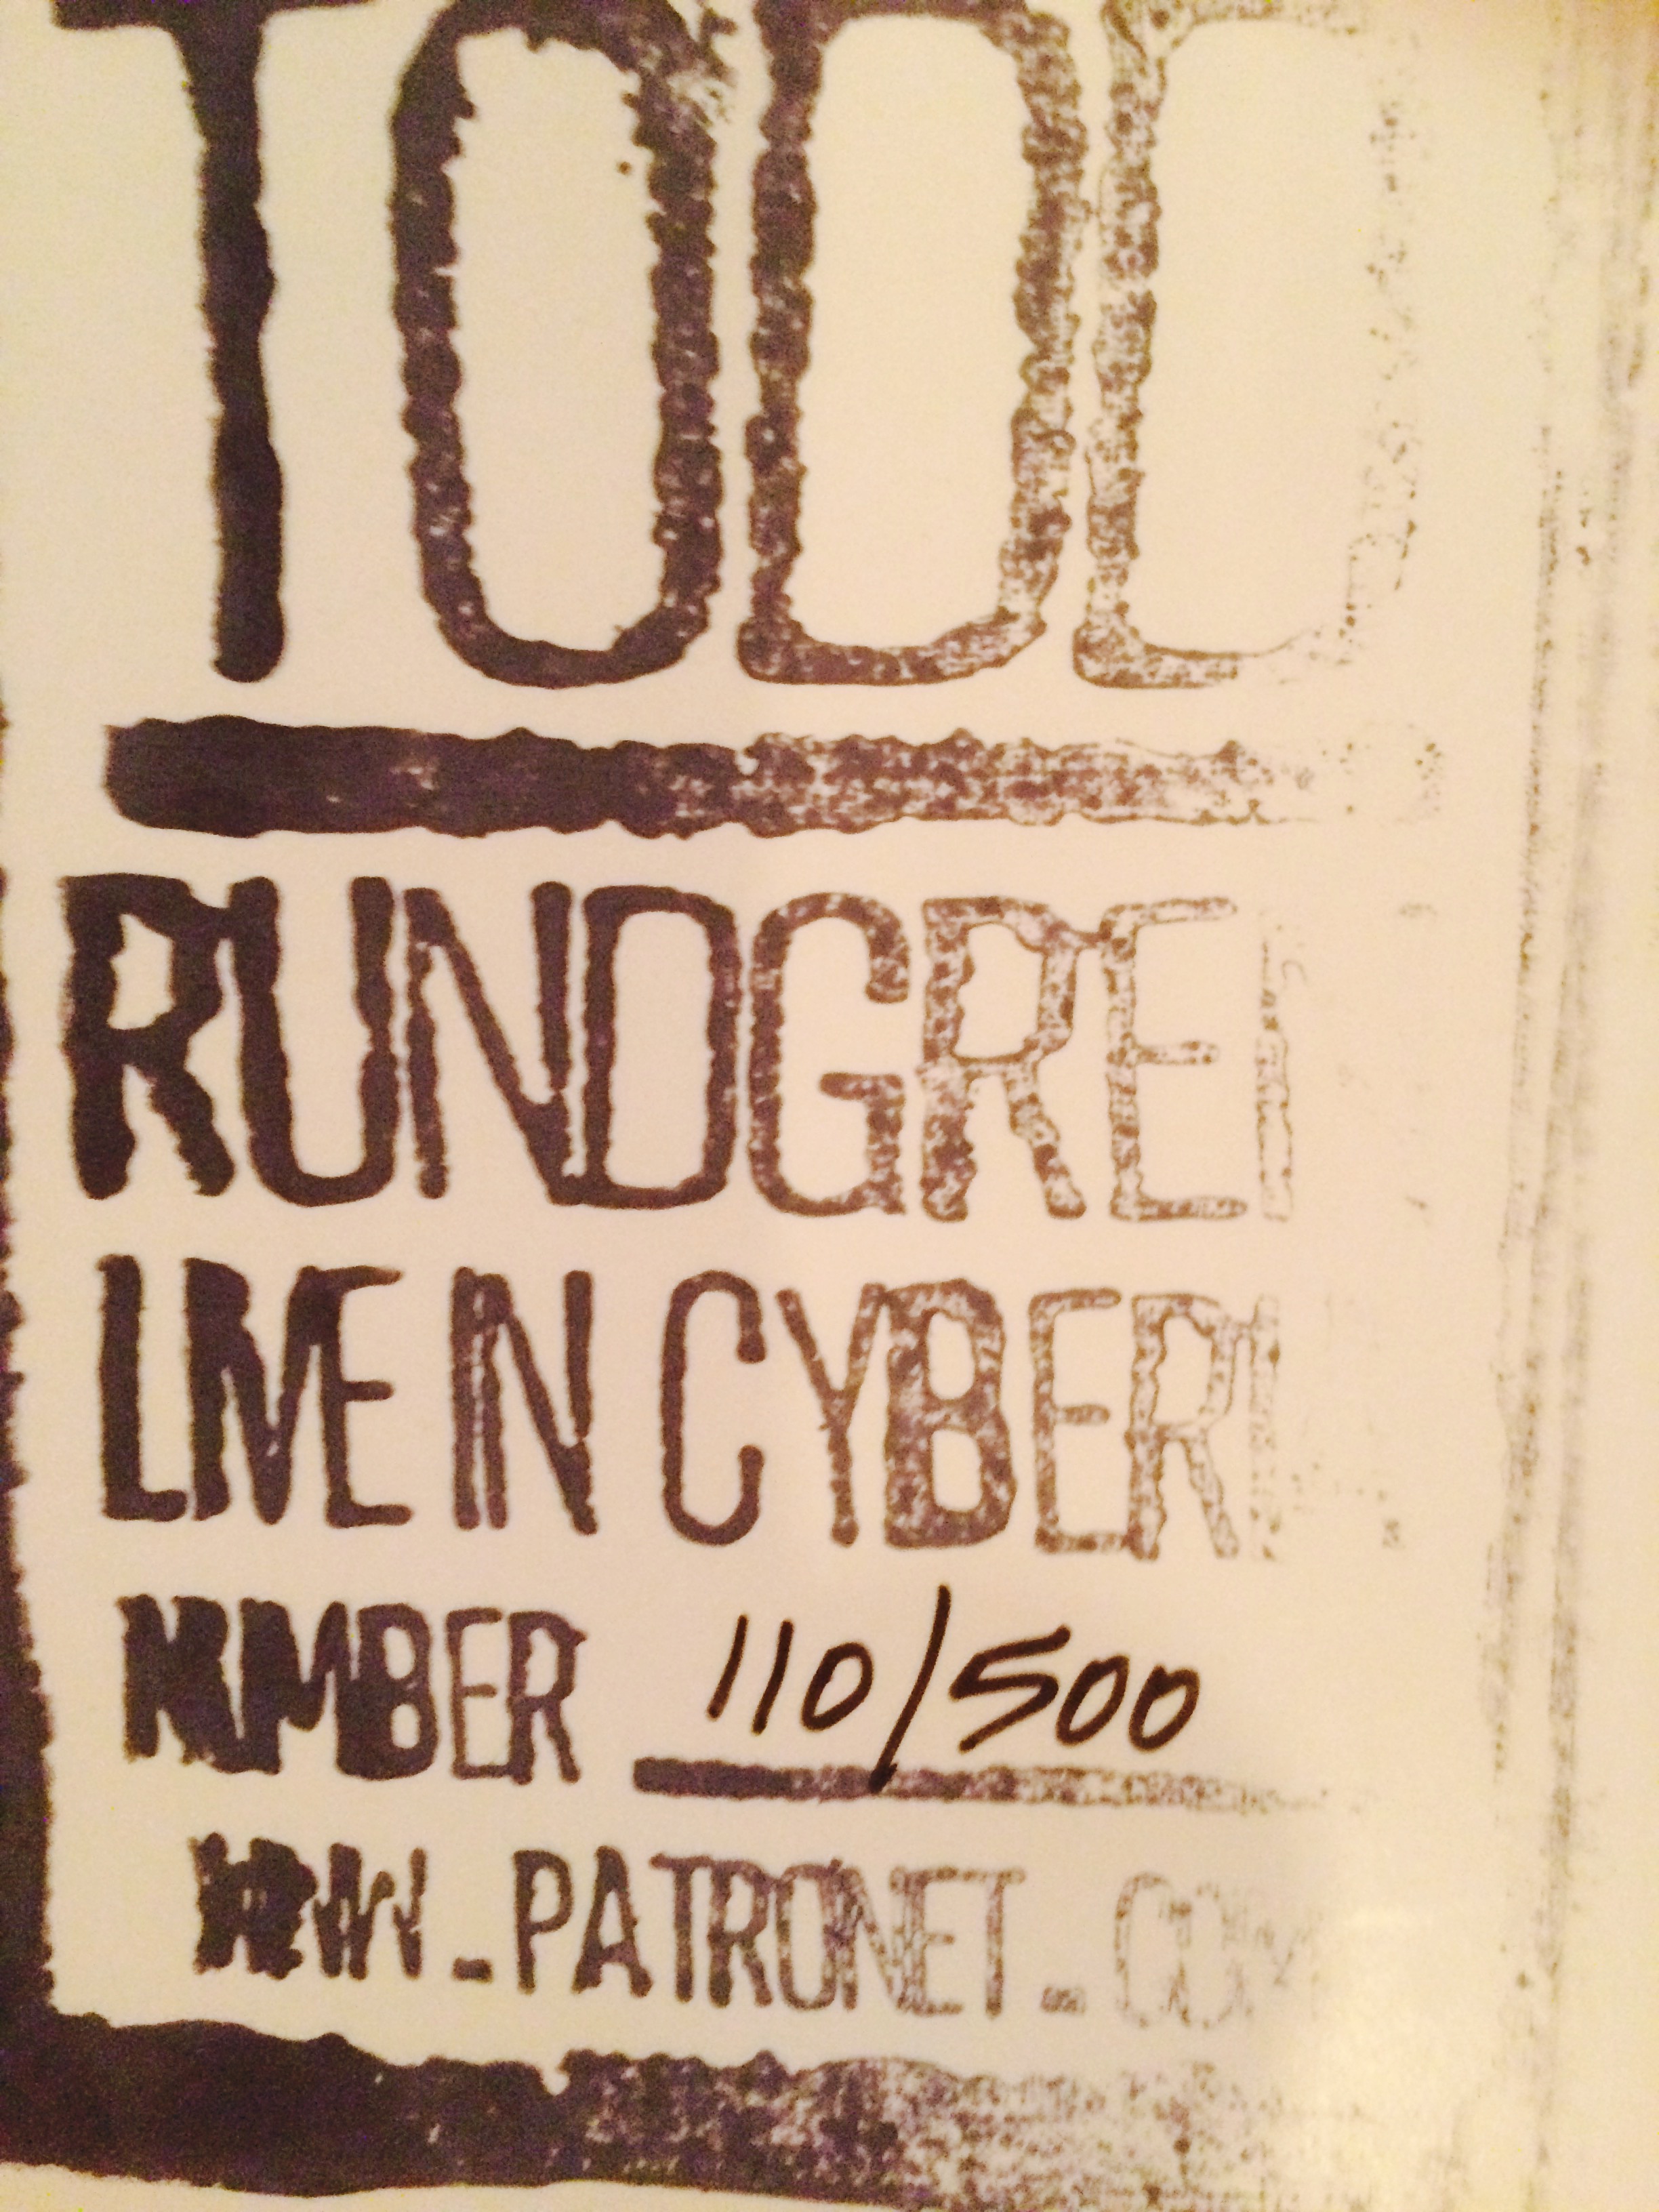 TODD
RUNDGREN
LIVE IN CYBERI
NUMBER 110/500
WWW.PATRONET.COM